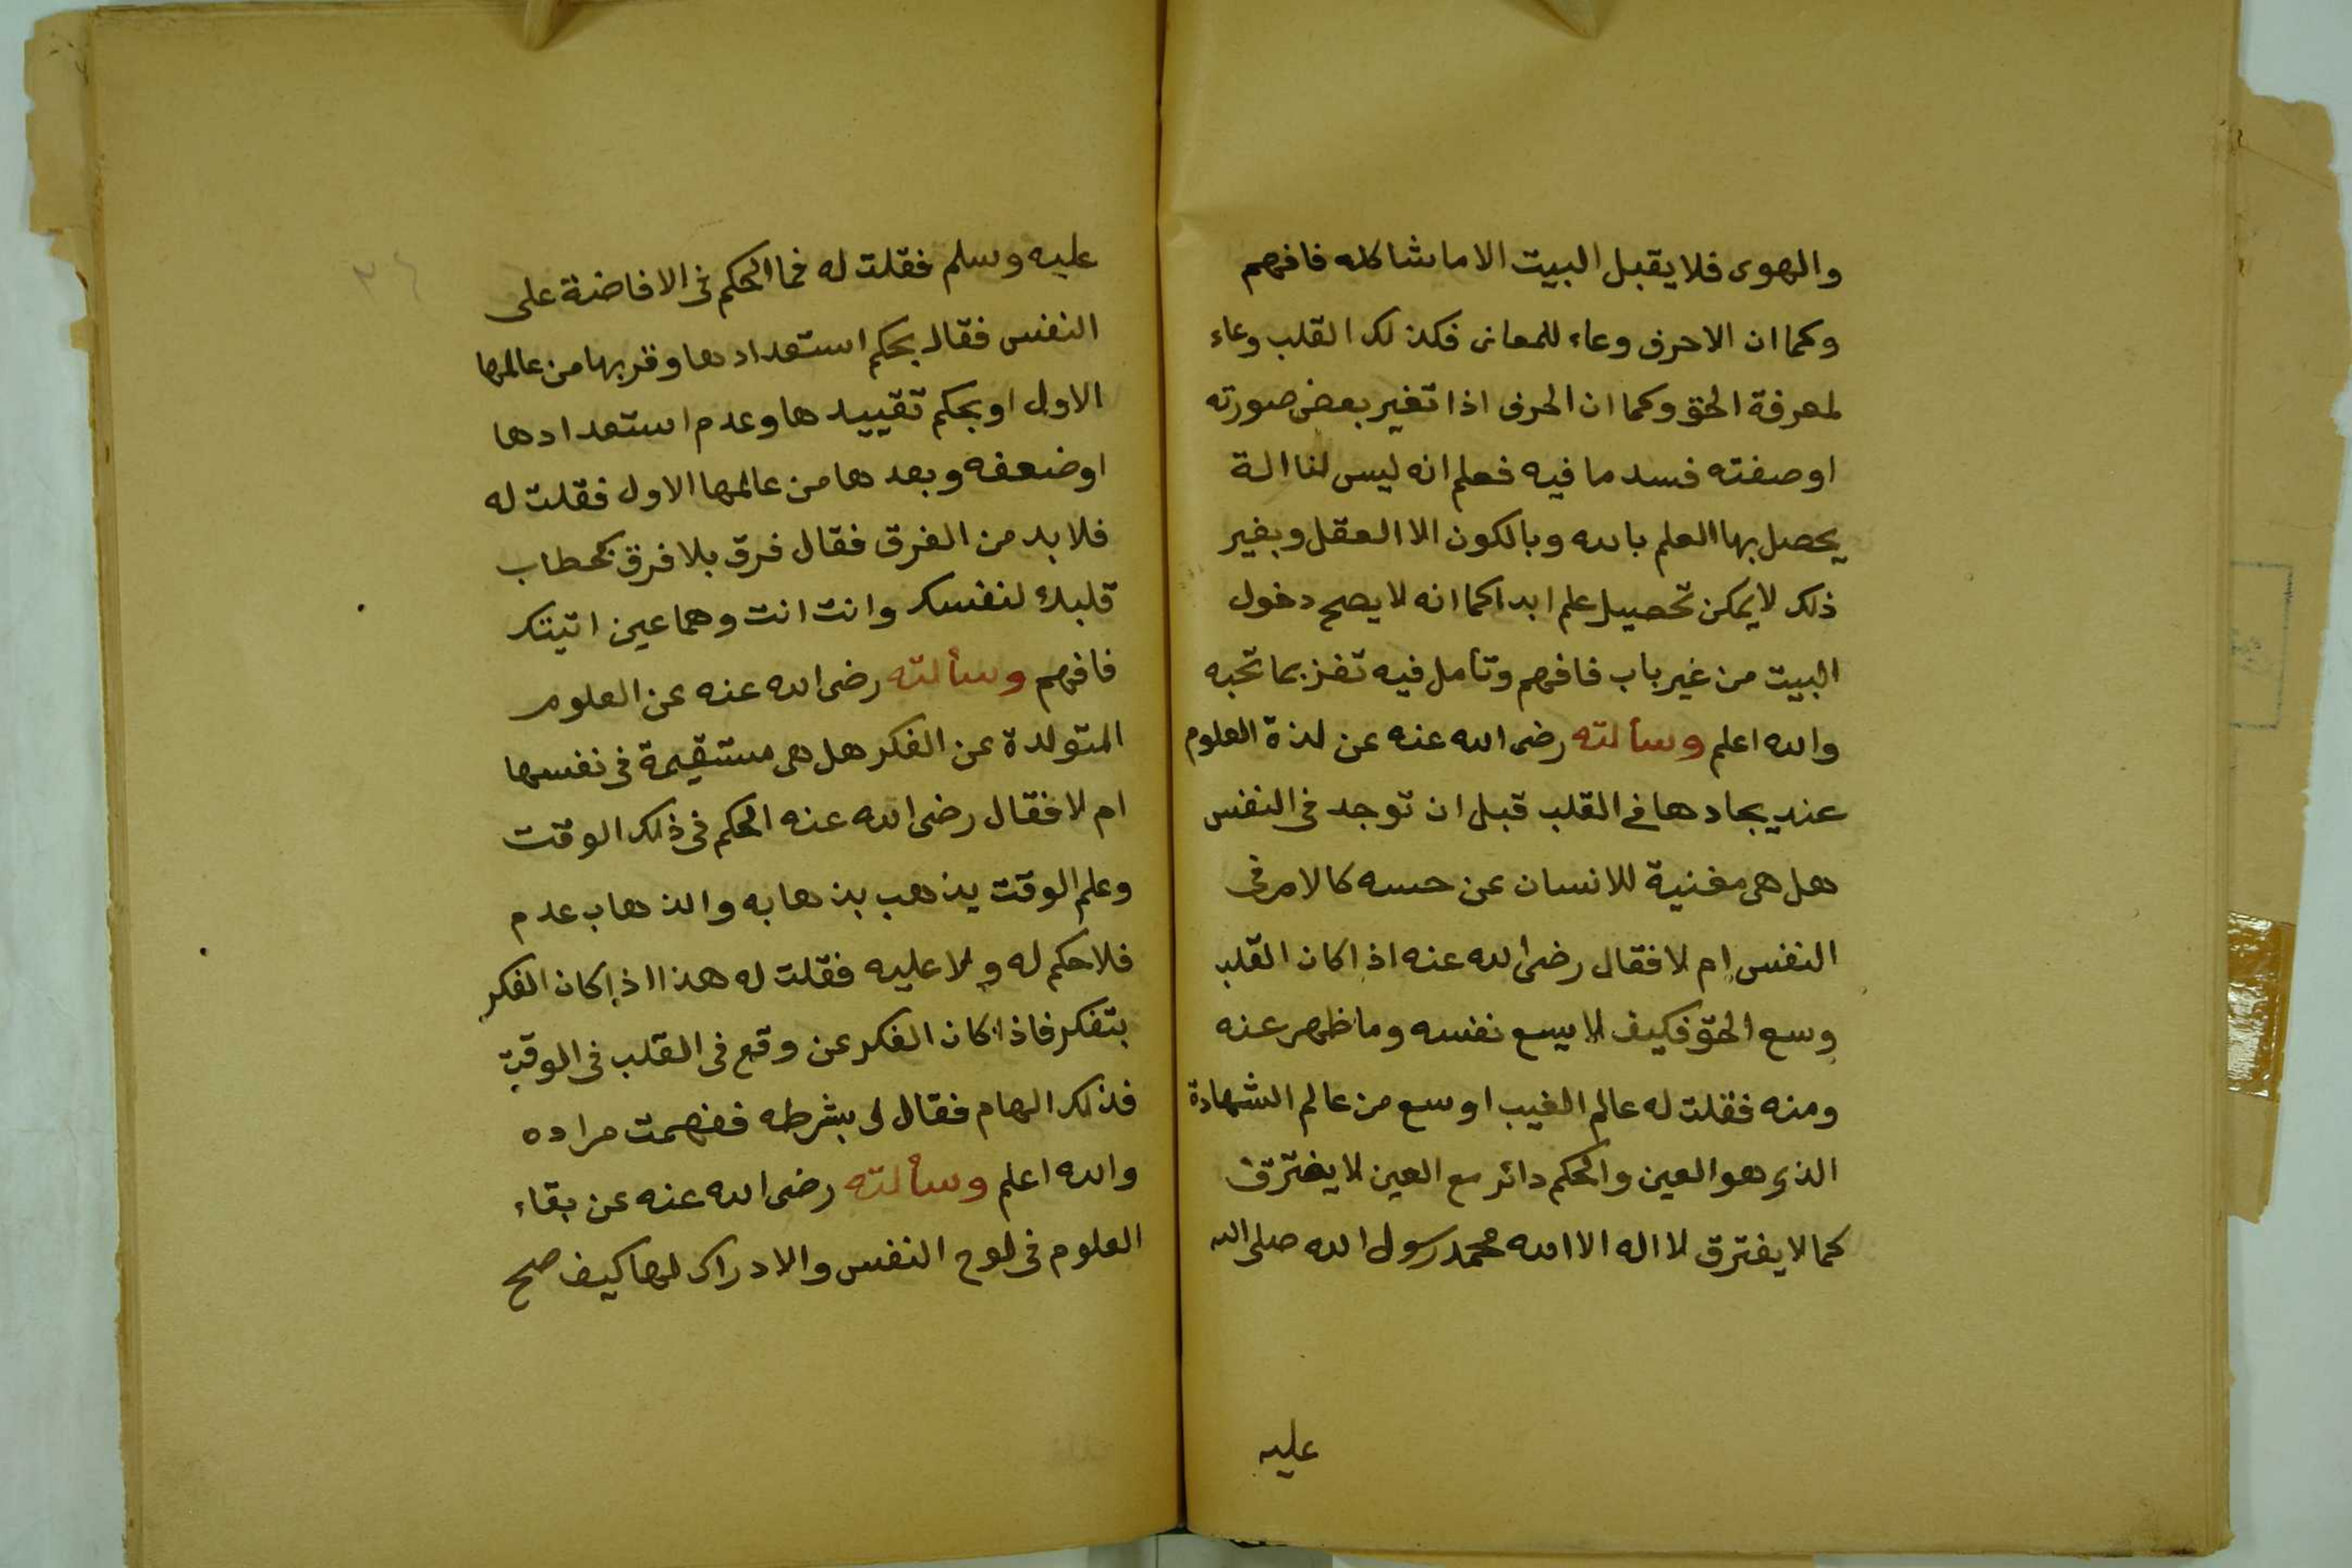 والهوى فلا يقبل البيت الا ما شاكله فافهم
وكما ان الاحرف وعاء للمعانى فكذلك القلب وعاء
لمعرفة الحق وكما ان الحرف اذا تغير بعض صورته
او صفته فسد ما فيه فعلم انه ليس لنا الة
يحصل بها العلم بالله وبالكون الا العقل وبغير
ذلك لا يمكن تحصيل علم ابدا كما انه لا يصح دخول
البيت من غير باب فافهم وتأمل فيه تفز بما تحبه
والله اعلم وسألته رضى الله عنه عن لذة العلوم
عند يجادها فى القلب قبل ان توجد فى النفس
هل هى مغنية للانسان عن حسه كالامر فى
النفس ام لا فقال رضى الله عنه اذا كان القلب
وسع الحق فكيف لا يسع نفسه وما ظهر عنه
ومنه فقلت له عالم الغيب اوسع من عالم الشهادة
الذى هو العين والحكم دائر مع العين لا يفترق
كما لا يفترق لا اله الا الله محمد رسول الله صلى الله
عليه
عليه وسلم فقلت له فما الحكم فى الافاضة على
النفس فقال بحكم استعدادها وقربها من عالمها
الاول او بحكم تقييدها وعدم استعدادها
او ضعفه وبعدها من عالمها الاول فقلت له
فلا بد من الفرق فقال فرق بلا فرق كخطاب
قلبك لنفسك وانت انت وهما عين اتيتك
فافهم وسألته رضى الله عنه عن العلوم
المتولدة عن الفكر هل هى مستقيمة فى نفسها
ام لا فقال رضى الله عنه الحكم فى ذلك الوقت
وعلم الوقت يذهب بذهابه والذهاب عدم
فلا حكم له ولا عليه فقلت له هذا اذا كان الفكر
بتفكر فاذا كان الفكر عن وقع فى القلب فى الوقت
فذلك الهام فقال لى بشرطه ففهمت مراده
والله اعلم وسألته رضى الله عنه عن بقاء
العلوم فى لوح النفس والادراك لها كيف صح